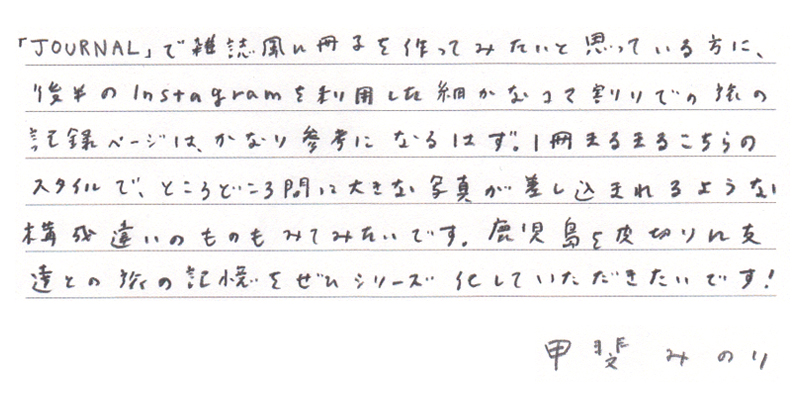 「JOURNAL」で雑誌風に冊子を作ってみたいと思っている方に、
後半のInstagramを利用した細かなコマ割りでの旅の
記録ページは、かなり参考になるはず。1冊まるまるこちらの
スタイルで、ところどころ間に大きな写真が差し込まれるような
構成違いのものもみてみたいです。鹿児島を皮切りに友
達との旅の記憶をぜひシリーズ化していただきたいです!
甲斐みのり